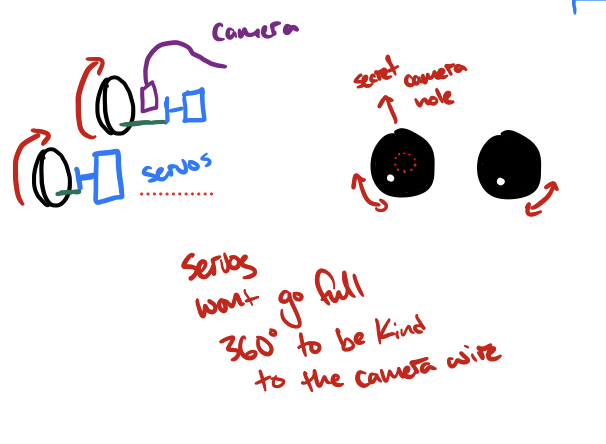 camera
servos
secret camera
hole
servos
wont go full
360° to be kind
to the camera wire